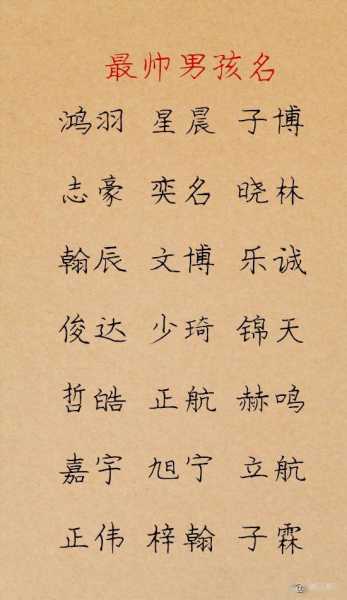 最帅男孩名
鸿羽 星晨 子博
志豪 奕名 晓林
翰辰 文博 乐诚
俊达 少琦 锦天
哲皓 正航 赫鸣
嘉宇 旭宁 立航
正伟 梓翰 子霖